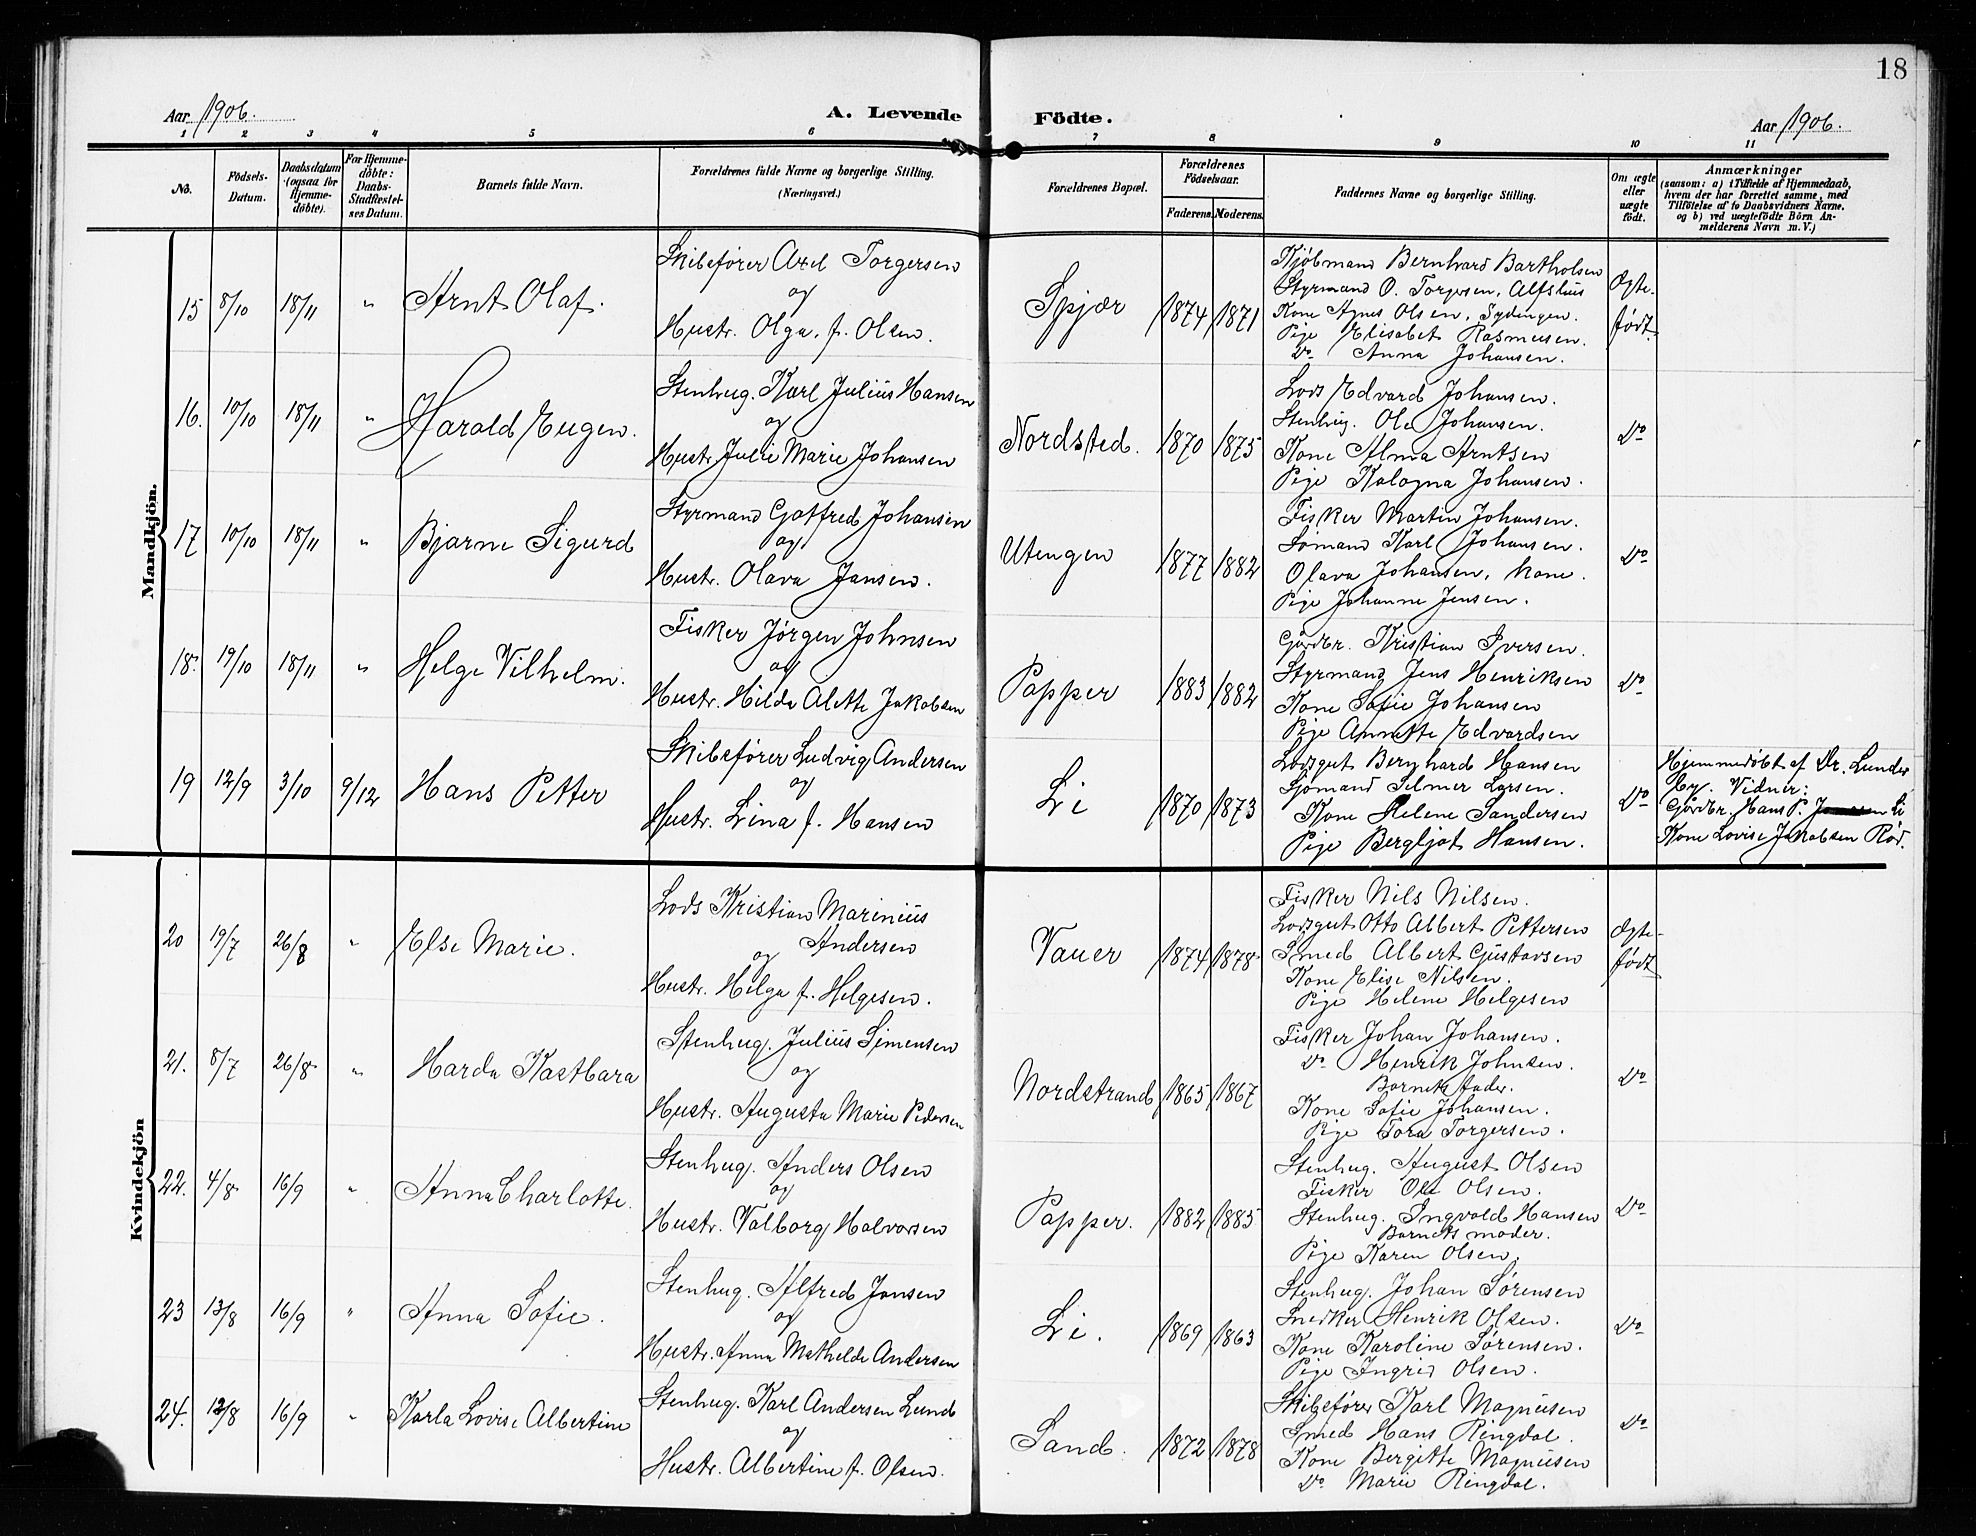 18
Aar 1906.
A. Levende Födte.
Aar 1906.
1 2 3 4 5 6 7 8 9 10 11
No.
Födsels-Datum.
Daabsdatum (ogsaa for Hjemme-döbte).
For Hjemme-döbte: Daabs-Stadfæstel-ses Datum.
Barnets fulde Navn.
Forældrenes fulde Navne og borgerlige Stilling. (Næringsvei.)
Forældrenes Bopæl.
Forældrenes Födselsaar.
Faderens. Moderens.
Faddernes Navne og borgerlige Stilling.
Om ægte eller uægte födt.
Anmærkninger
(saasom: a) i Tilfælde af Hjemmedaab, hvem der har forrettet samme, med Tilföielse af to Daabsvidners Navne, og b) ved uægtefödte Börn An-melderens Navn m. V.)
Mandkjön.
15 8/10 18/11 " Arnt Olaf.
Skibsfører Axel Torgersen
og
Hustr. Olga, f. Olsen.
Spjær 1874 1871
Kjøbmand Bernhard Bartholsen
Styrmand O. Torgersen, Alfslius
Kone Agnes Olsen, Sydengen.
Pige Elisabet Rasmusen.
Do Anna Johansen.
Ægte-født.
16. 10/10 18/11 " Harald Eugen.
Stenhug. Karl Julius Hansen
og
Hustr. Julie Marie Johansen
Nordsted. 1870 1875
Lods Edvard Johansen.
Stenhug. Ole Johansen.
Kone Alma Arntsen
Pige Kalogna Johansen.
Do
17 10/10 18/11 " Bjarne Sigurd
Styrmand Gotfred Johansen
og
Hustr. Olava Jansen.
Utengen 1877 1882
Fisker Martin Johansen.
Sømand Karl Johansen.
Olava Johansen, kone.
Pige Johanne Jensen.
Do
18. 19/10 18/11 " Helge Vilhelm.
Fisker Jørgen Johnsen
og
Hustr. Hilda Alette Jakobsen
Papper 1883 1882
Gårdbr. Kristian Iversen.
Styrmand Jens Henriksen
Kone Sofie Johansen
Pige Annette Edvardsen
Do
19 12/9 3/10 9/12 Hans Petter
Skibsfører Ludvig Andersen
og
Hustr. Lina f. Hansen
Li 1870 1873
Lodsgut Bernhard Hansen
Sjømand Selmer Larsen.
Kone Helene Sandersen
Pige Bergljot Hansen.
Do
Hjemmedøbt af Dr. Lunder
Vidner:
Gårdbr. Hans P. Li
Kone Lovise Jakobsen Rød.
Kvindekjön
20 19/7 26/8 " Else Marie.
Lods Kristian Marinius
Andersen
og
Hustr. Helga f. Helgesen.
Vauer 1874 1878
Fisker Nils Nilsen.
Lodsgut Otto Albert Pettersen
Smed Albert Gustavsen
Kone Elise Nilsen.
Pige Helene Helgesen
Ægte-født
21. 8/7 26/8 " Harda Kastbara
Stenhug. Julius Simensen
og
Hustr. Augusta Marie Pedersen
Nordstrand 1865 1867
Fisker Johan Johansen.
Do Henrik Johnsen.
Barnets fader.
Kone Sofie Johansen.
Pige Tora Torgersen.
Do
22. 4/8 16/9 " Anna Charlotte.
Stenhug. Anders Olsen
og
Hustr. Valborg Halvorsen
Papper. 1882 1885
Stenhug. August Olsen
Fisker Ole Olsen.
Stenhug. Ingvald Hansen
Barnets moder.
Pige Karen Olsen.
Do
23 13/8 16/9 " Anna Sofie.
Stenhug. Alfred Jansen
og
Hustr. Anna Mathilde Andersen
Li. 1869 1863
Stenhug. Johan Sørensen
Snedker Henrik Olsen.
Kone Karoline Sørensen.
Pige Ingrid Olsen.
Do
24. 12/8 16/9 " Karla Lovise Albertine
Stenhug. Karl Andersen Lund
og
Hustr. Albertine f. Olsen.
Sand. 1872 1878
Skibsfører Karl Magnusen
Smed Hans Ringdal.
Kone Bergitte Magnusen
Do Marie Ringdal.
Do